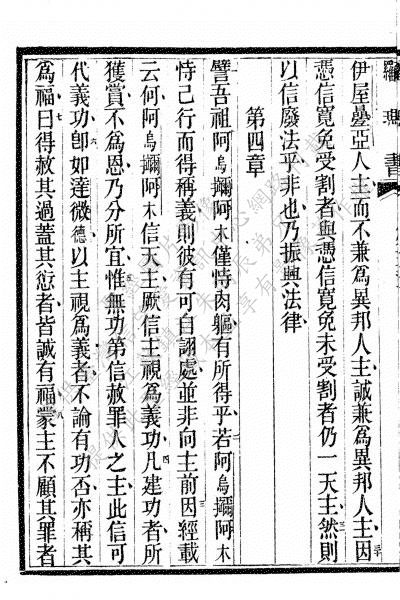 羅瑪書
伊屋曇亞人主而不兼爲異邦人主誠兼爲異邦人主因
憑信寬免受割者與憑信寬免未受割者仍一天主然則
以信廢法乎非也乃振興法律
第四章
譬吾祖阿烏擸阿木僅恃肉軀有所得乎若阿烏擸阿木
恃己行而得稱義則彼有可自詡處並非向主前因經載
云何阿烏擸阿木信天主厥信主視爲義功凡建功者所
獲賞不爲恩乃分所宜惟無功第信赦罪人之主此信可
代義功卽如達微德以主視爲義者不論有功否亦稱其
爲福曰得赦其過蓋其愆者皆誠有福蒙主不顧其罪者